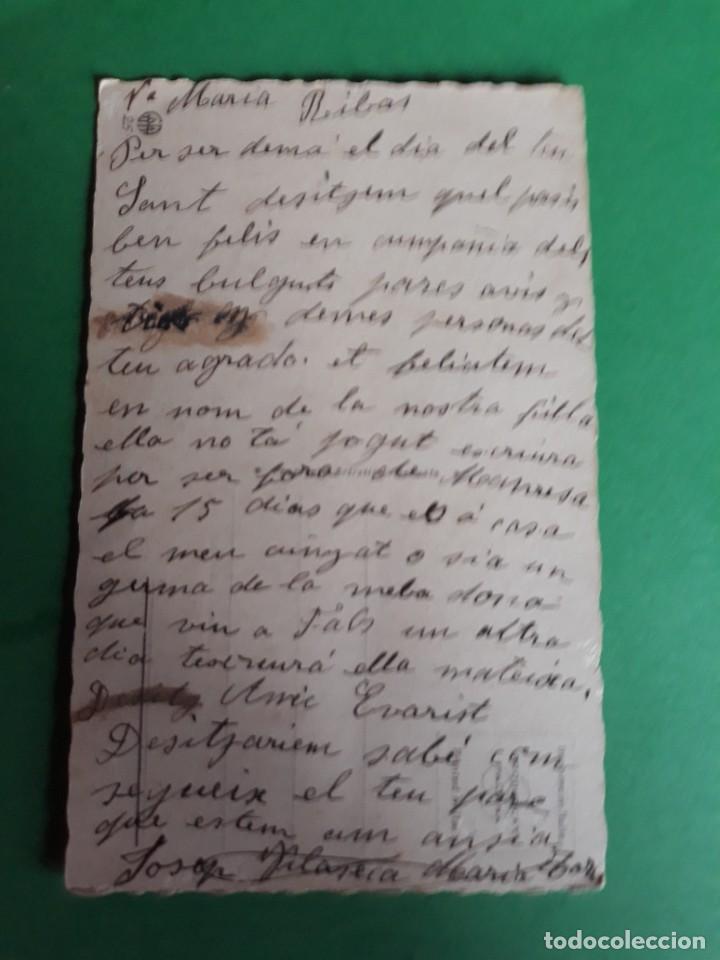 Nª Maria Ribas
Per ser demá el dia del teu
Sant desitzem quel pasis
ben felis en cumpania dels
teus bulguts pares avis y
demes personas del
teu agrado. et felicitem
en nom de la nostra filla
ella no tá pogut escriura
por ser fora de Manresa
fa 15 dias que es á casa
el meu cunyat o sia un
germa de la meba dona
que viu a Fals un altra
dia tescriurá ella mateixa,
Amic Evarist
Desitzariem sabé com
segueix el teu pare
que estem am ansia
Josep Vilaseca Maria
todocoleccion
todocoleccion.net